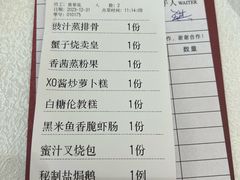 人 数: 2
日期: 2023-12-31
单号: 010175
WAITER
谢谢合作!
数量
豉汁蒸排骨 1份
蟹子烧卖皇 1份
香茜蒸粉果 1份
XO酱炒萝卜糕 1份
白糖伦教糕 1份
黑米鱼香脆虾肠 1份
蜜汁叉烧包 1份
秘制盐焗鹅 1例